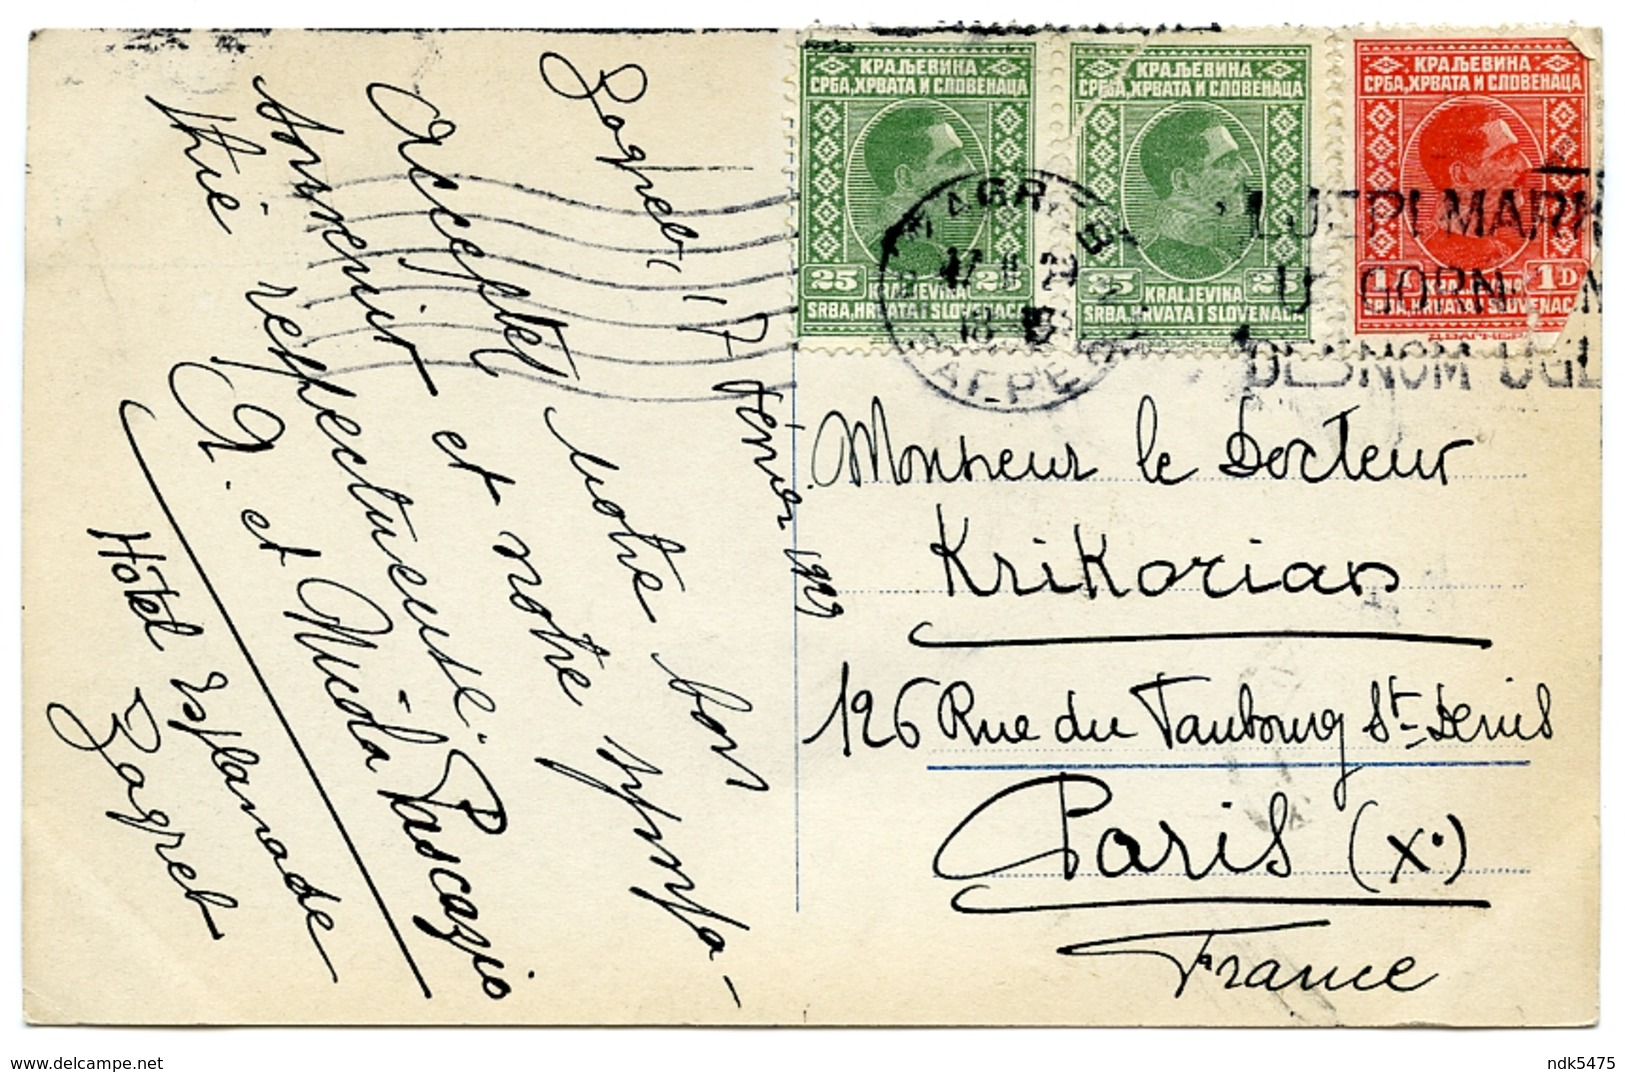 Zagreb, 17 février 1929
Acceptez notre bon
souvenir et notre sympa-
thie respectueuse.
N. et Nicola Pascazio
Hôtel Esplanade
Zagreb
КРАЉЕВИНА
СРБА, ХРВАТА И СЛОВЕНАЦА
25 25
KRALJEVINA
SRBA, HRVATA I SLOVENACA
КРАЉЕВИНА
СРБА, ХРВАТА И СЛОВЕНАЦА
25 25
KRALJEVINA
SRBA, HRVATA I SLOVENACA
КРАЉЕВИНА
СРБА, ХРВАТА И СЛОВЕНАЦА
1D
SRBA, HRVATA I SLOVENACA
ZAGREB
17 II 29
ЗАГРЕБ
LIJEPI MARK
U GORN
DESNOM UGL
Monsieur le Docteur
Krikorian
126 Rue du Faubourg St-Denis
Paris (Xº)
France
www.delcampe.net
ndk5475